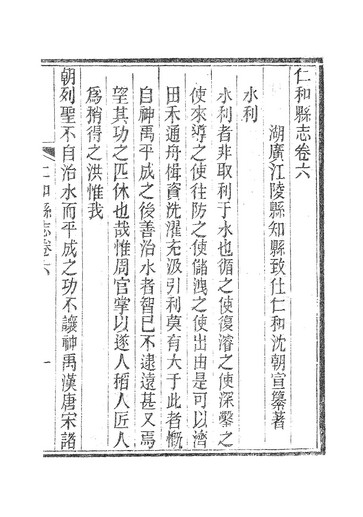 仁和縣志卷六
湖廣江陵縣知縣致仕仁和沈朝宣纂著
水利
水利者非取利于水也循之使復濬之使深鑿之
使來導之使往防之使儲洩之使出由是可以濟
田禾通舟楫資洗濯充汲引利莫有大于此者慨
自神禹平成之後善治水者智已不逮遠甚又焉
望其功之匹休也哉惟周官掌以遂人稻人匠人
爲稍得之洪惟我
朝列聖不自治水而平成之功不讓神禹漢唐宋諸
仁和縣志卷六
一